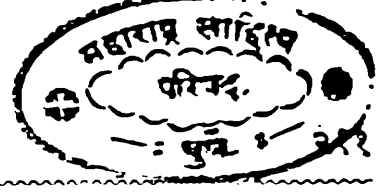 महाराष्ट्र साहित्य
परिषद.
: पुणें :